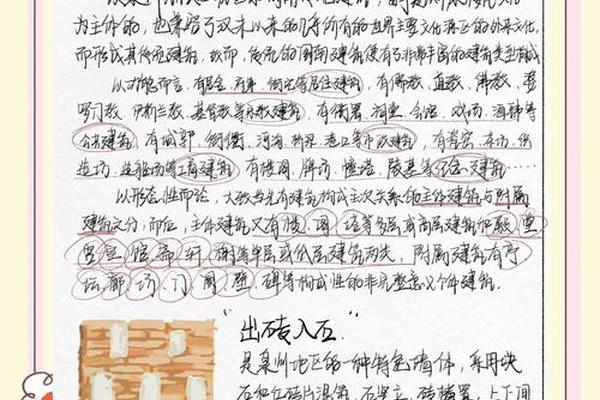 为主体的，也兼容了汉末以来的几乎所有的世界主要文化源区的外来文化，
而形成其传统建筑，故而，传统的闽南建筑便有了非常丰富的建筑类型构成
以功能而言，有民舍、府第、街宅等居住建筑，有儒教、道教、佛教、婆
罗门教、伊斯兰教、基督教等宗教建筑，有衙署、祠堂、会馆、戏场、海驿等
公共建筑，有城郭、街衢、河沟、桥梁、港口等市政建筑，有
造坊、等工商建筑，有楼阙、牌坊、幢塔、陵墓等纪念建筑……
以形态性而论，大致首先有建筑构成主次关系的主体建筑与附属
建筑之分，而后，主体建筑又有楼、阁、塔等多层或高层建筑和殿、堂
宫、室、馆、斋、轩、榭等单层或低层建筑两类，附属建筑有亭
坛、廊、坊、门、阙、壁、碑等构成性的非完整意义个体建筑.
“出砖入石”
是泉州地区的一种特色墙体，采用块
石和红砖片混筑，石竖立，砖横置，上下间